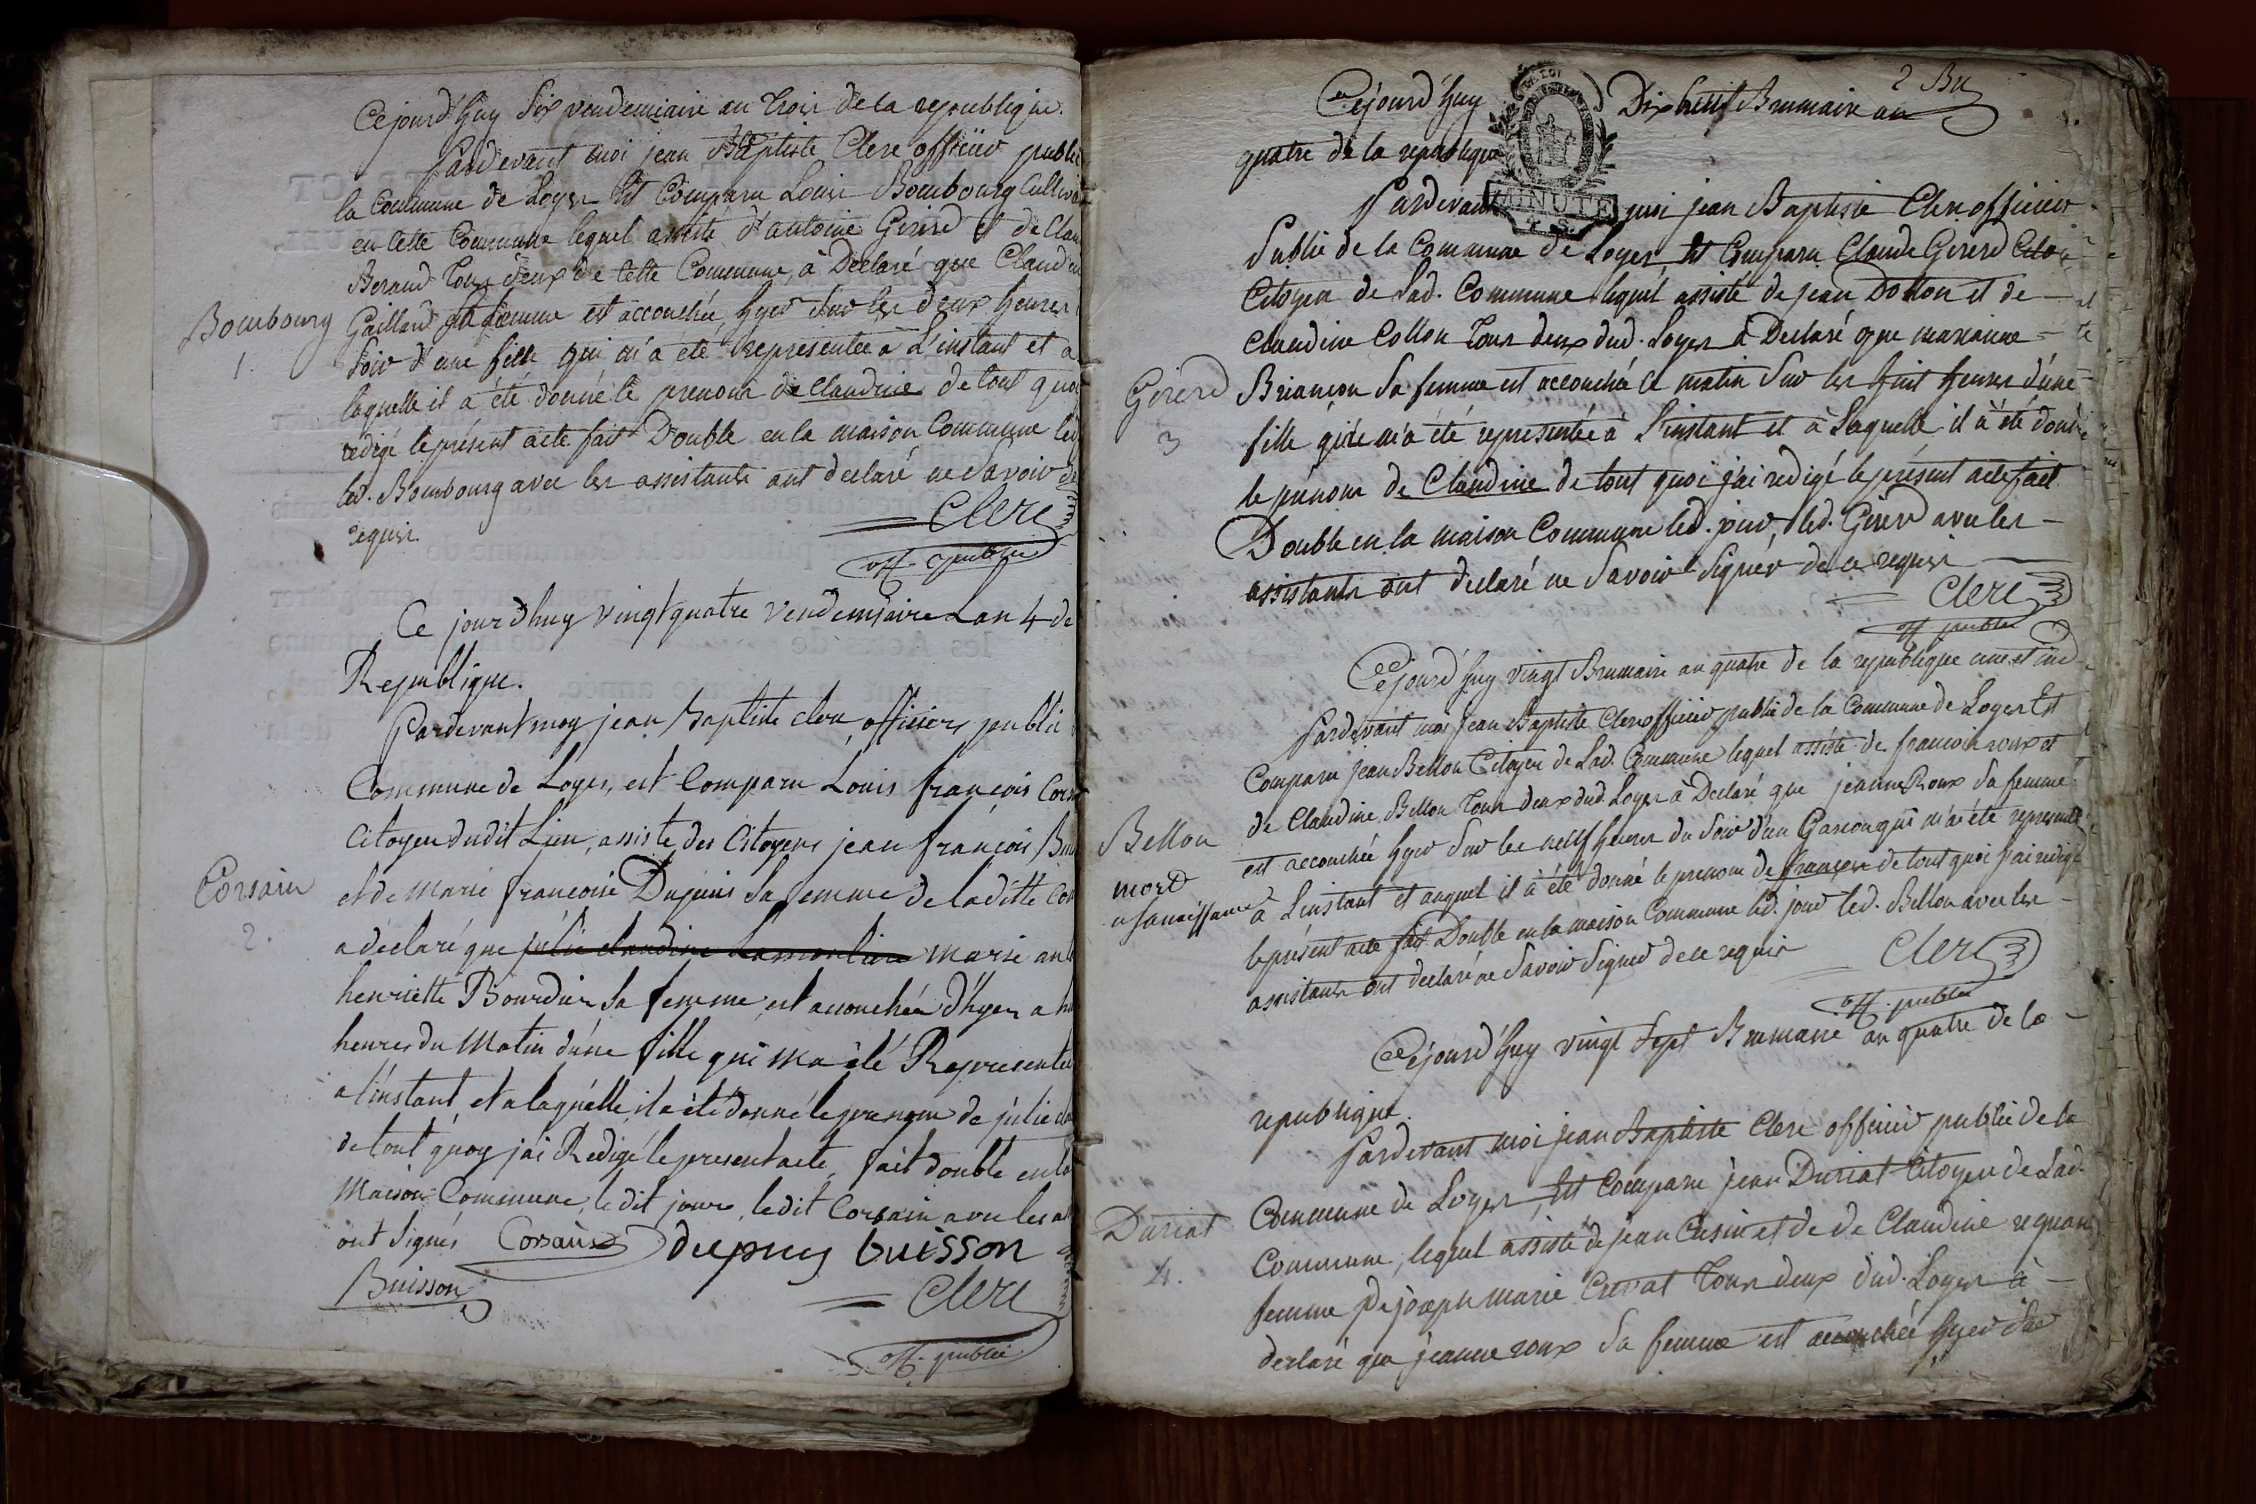 Cejourd'huy Six vendemiaire an trois de la republique.
Pardevant moi jean Baptiste Clerc officier public
la Commune de Loyes Est Comparu Louis Bombourg
en cette Commune lequel assisté d'antoine Girerd et de
Beraud tous deux de cette Commune, à Declaré que
Gaillard sa femme est accouchée hyer sur les deux heures
soir d'une fille qui m'a eté representée à L'instant et a
laquelle il a été donné le prenom de Claudine de tout quoi
rédigé le présent acte fait Double en la maison Commune
led. Bombourg avec les assistants ont declaré ne savoir
requis.
Clerc
off. public
Bombourg
1.
Ce jourdhuy vingt quatre vendemiaire Lan 4 de
Republique.
Pardevant moy jean Baptiste clerc, officier public
Commune de Loyes, est Comparu Louis françois
Citoyen dudit Lieu, assiste des Citoyens jean françois
et de marie françoise Dupuis sa femme de laditte
a déclaré que julie claudine marie
henriette Bourdin sa femme est accouchée d'hyer a
heures du Matin d'une fille qui ma été Representée
a l'instant, et a laquelle il a été donné le prenom de julie
de tout quoy jai Redigé le present acte, fait double en la
Maison Commune, le dit jour, le dit Corsain avec les
ont signés Corsain dupuy buisson
Buisson
Clerc
off. public
Corsain
2.
2 Bru
Cejourd'huy Dix huit Brumaire an
quatre de la republique
LA LOI
MINUTE
Pardevant moi jean Baptiste Clerc officier
Public de la Commune de Loyes, Est Comparu Claude Girerd
Citoyen de Lad. Commune lequel assisté de jean Dotton et de
Claudine Collon tous deux dud. Loyes à Declaré que marianne
Briançon sa femme est accouchée ce matin sur les huit heures d'une
fille qui m'a été representée à L'instant et à Laquelle il à été
le prenom de Claudine de tout quoi j'ai redigé le présent acte fait
Double en la maison Commune led. jour, led. Girerd avec les
assistants ont declaré ne savoir signer de ce requis
Clerc
off. public
Girerd
3
Cejourd'huy vingt Brumaire an quatre de la republique une et ind
Pardevant moi jean Baptiste Clerc officier public de la Commune de Loyes Est
Comparu jean Bellon Citoyen de Lad. Commune lequel assisté de francois roux et
de Claudine Bellon tous deux dud. Loyes à Declaré que jeanne Roux sa femme
est accouchée hyer sur les neuf heures du soir d'un Garcon qui m'a été representé
à L'instant et auquel il à été donné le prenom de françois de tout quoi j'ai redigé
le présent acte fait Double en la maison Commune led. jour led. Bellon avec les
assistants ont declaré ne savoir signer de ce requis
Clerc
off. public
Bellon
mort
a sa naissance
Cejourd'huy vingt sept Brumaire an quatre de la
republique.
Pardevant moi jean Baptiste Clerc officier public de la
Commune de Loyes, Est Comparu jean Duriat Citoyen de Lad.
Commune, lequel assisté de jean Cusin et de de Claudine
femme de joseph marie Crevat tous deux dud. Loyes à
declaré que jeanne roux sa femme est accouchée hyer sur
Duriat
4.